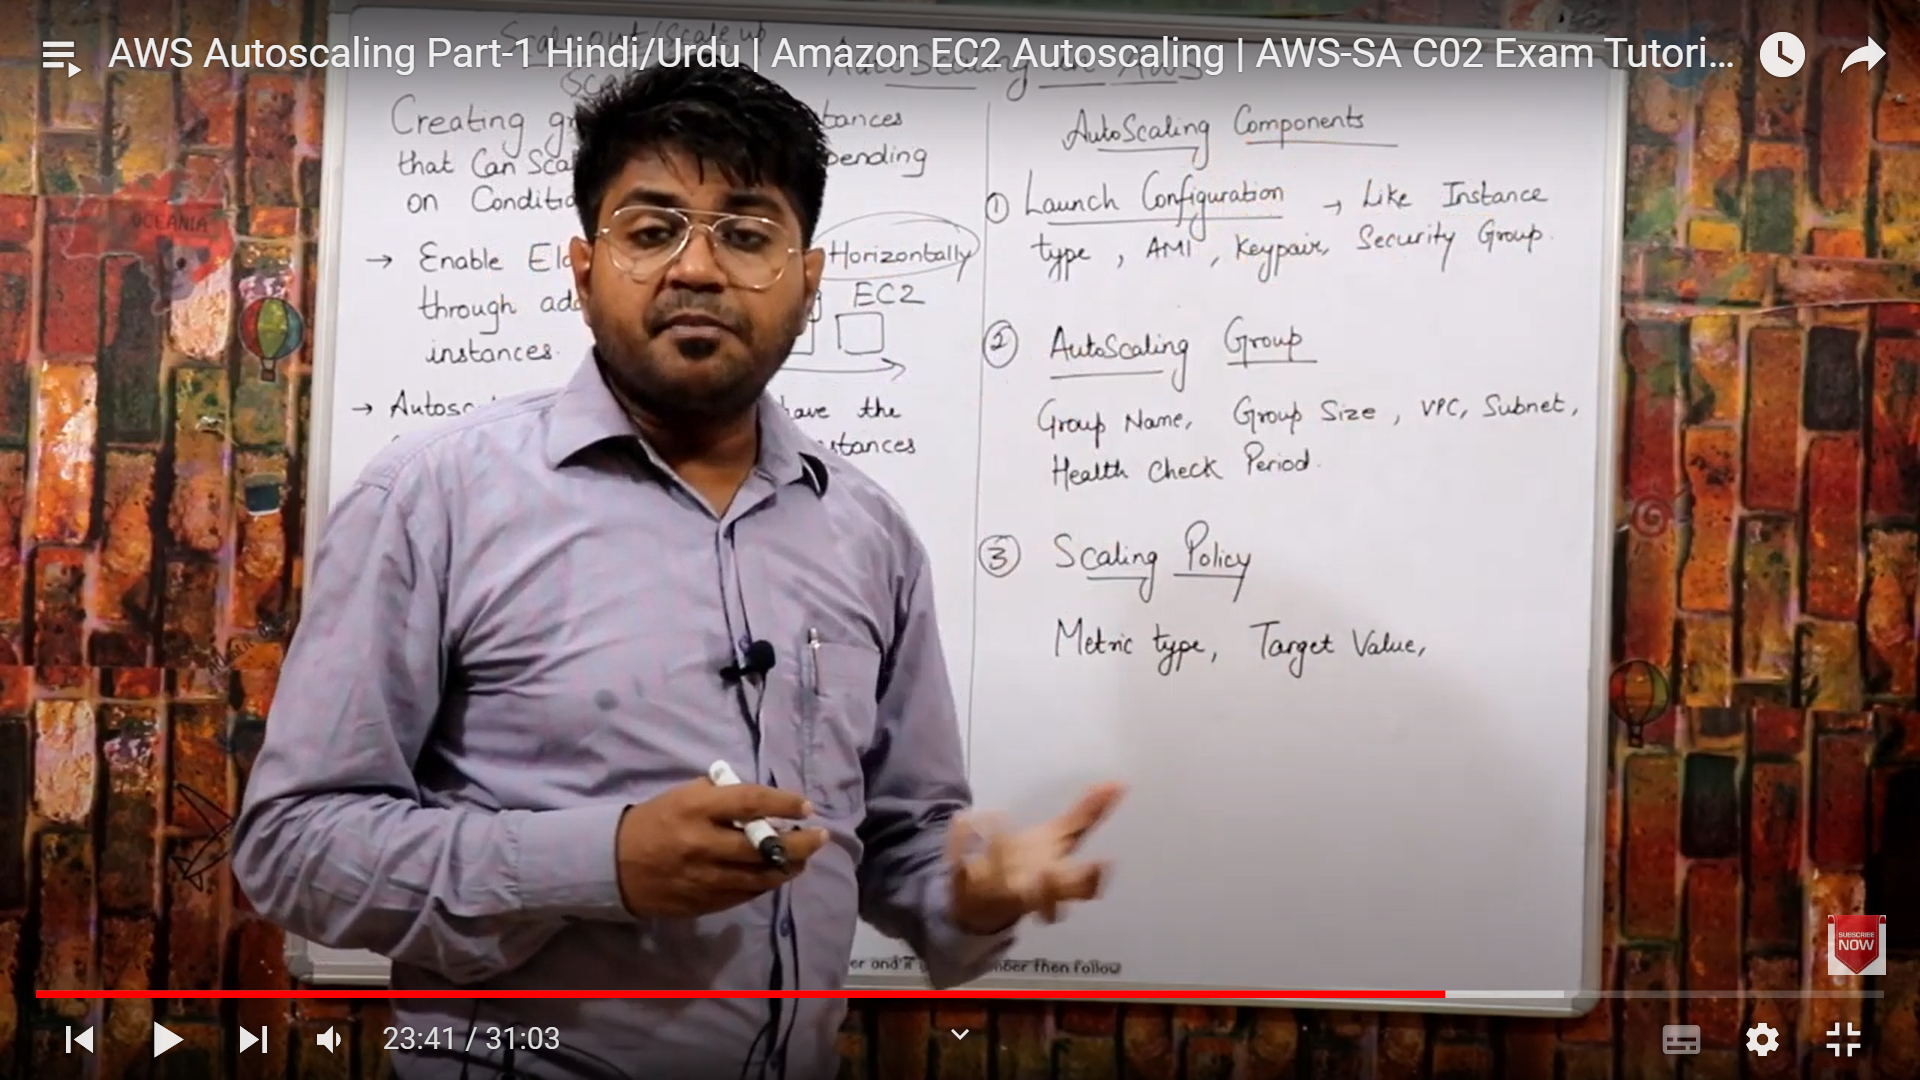 AWS Autoscaling Part-1 Hindi/Urdu | Amazon EC2 Autoscaling | AWS-SA C02 Exam Tutori...
Scale out/Scale up
AutoScaling in AWS
Creating
tances
that Can
pending
on
→ Enable
Horizontally
through
EC2
instances.
→
have the
AutoScaling Components
① Launch Configuration → Like Instance
type, AMI, Keypair, Security Group.
② AutoScaling Group
Group Name, Group Size, VPC, Subnet,
Health Check Period.
③ Scaling Policy
Metric type, Target Value,
OCEANIA
then follow
SUBSCRIBE
NOW
23:41 / 31:03